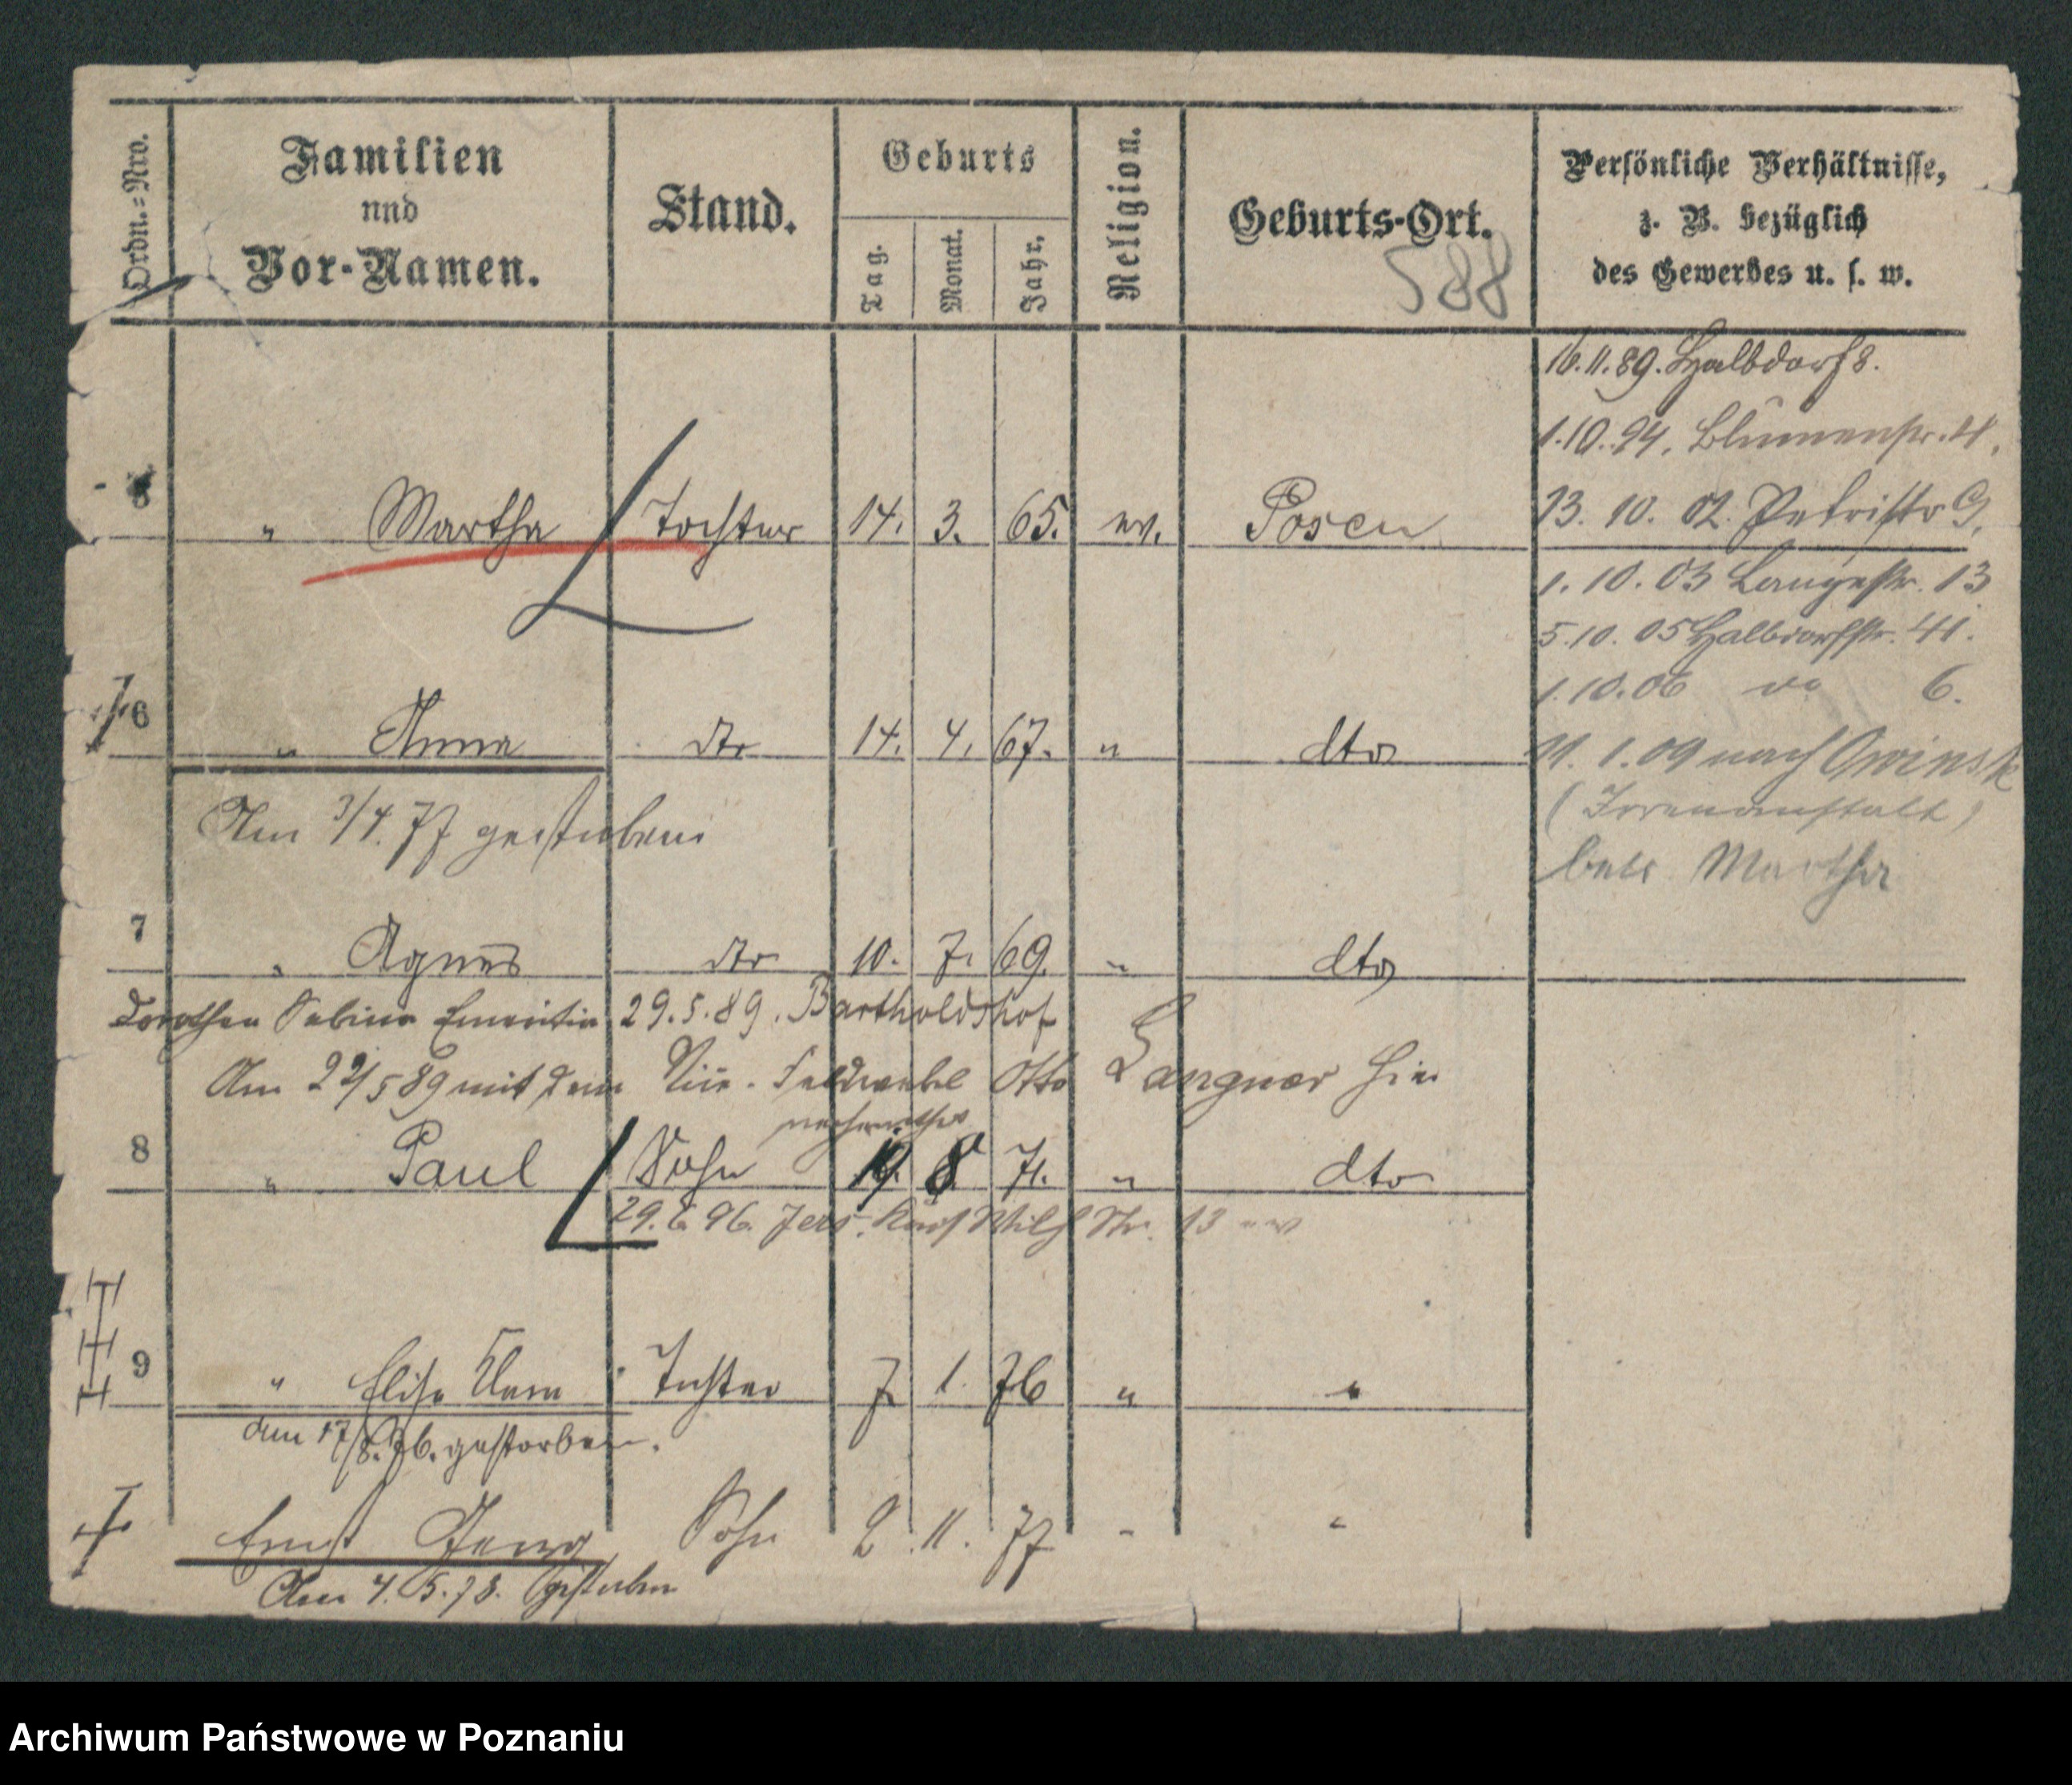 Ordn.=Nro.
Familien
und
Vor-Namen.
Stand.
Geburts
Tag.
Monat.
Jahr.
Religion.
Geburts-Ort.
588
Persönliche Verhältnisse,
z. B. bezüglich
des Gewerbes u. s. w.
16.11.89. Halbdorf 8.
1.10.94. Blumenstr.
" Martha Tochter 14. 3. 65. ev. Posen
13. 10. 02. Petristr 9.
1. 10. 03 Langestr. 13
5.10.05 Halbdorfstr. 41.
1.10.06 do 6.
6 " Anna dto 14. 4. 67. " dto
11. 1.09 nach Owinsk
(Irrenanstalt)
betr. Martha
Am 3/4.77 gestorben
7 " Agnes dto 10. 7. 69. " dto
Dorothea Sabina Emerentia 29.5.89. Bartholdshof
Am 22/5 89 mit dem Vice-Feldwebel Otto Langner hier
verheirathet
8 " Paul Sohn 19. 8. 71. " dto
29. 96. Jers. Wilh Str. 13
9 " Elise Clara Tochter 7 1. 76 " "
am 17/8.76. gestorben.
Ernst Georg Sohn 2. 11. 77 " "
Am 4. 5. 78. gestorben
Archiwum Państwowe w Poznaniu